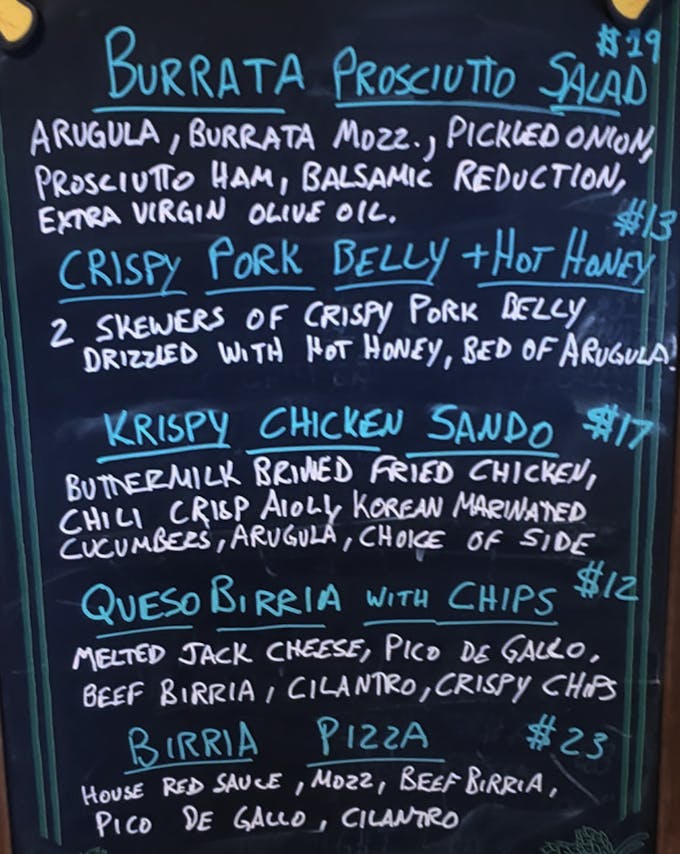 $19
BURRATA PROSCIUTTO SALAD
ARUGULA, BURRATA MOZZ., PICKLED ONION,
PROSCIUTTO HAM, BALSAMIC REDUCTION,
EXTRA VIRGIN OLIVE OIL.
$13
CRISPY PORK BELLY + HOT HONEY
2 SKEWERS OF CRISPY PORK BELLY
DRIZZLED WITH HOT HONEY, BED OF ARUGULA!
KRISPY CHICKEN SANDO $17
BUTTERMILK BRINED FRIED CHICKEN,
CHILI CRISP AIOLY KOREAN MARINATED
CUCUMBERS, ARUGULA, CHOICE OF SIDE
QUESO BIRRIA WITH CHIPS $12
MELTED JACK CHEESE, PICO DE GALLO,
BEEF BIRRIA, CILANTRO, CRISPY CHIPS
BIRRIA PIZZA $23
HOUSE RED SAUCE, MOZZ, BEEF BIRRIA,
PICO DE GALLO, CILANTRO